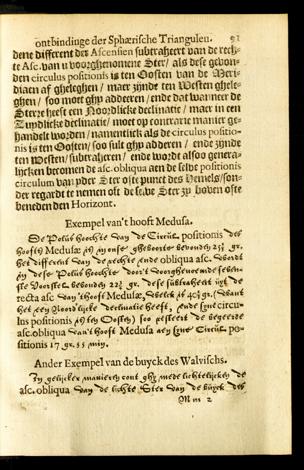 ontbindinge der Sphærische Trianguleu. 91
dene different der Ascensien subtraheert van de rech-
te Asc. van u voorghenomene Ster / als dese gevon-
den circulus positionis is ten Oosten van de Meri-
diaen af gheleghen / maer zynde ten Westen ghele-
ghen / soo moet ghy adderen / ende dat wanneer de
Sterre heeft een Noordlicke declinatie / maer in een
Zuydlicke declinatie / moet op contrarie manier ge-
handelt worden / namentlick als de circulus positio-
nis is ten Oosten / soo sult ghy adderen / ende zynde
ten Westen / subtraheren / ende wordt alsoo genera-
lycken bevonen de asc. obliqua aen de selve positionis
circulum van yder Ster ofte punct des Hemels / son-
der regardt te nemen oft de selve Ster zy boven ofte
beneden den Horizont.
Exempel van't hooft Medusa.
De Polus hoochte van de Circul positionis des
hoofts Medusæ is in onse gheboorte bevonden 23½ gr.
het different van de rechte ende obliqua asc. wordt
in dese Polus hoochte door't voorghenoemde
Voorstel bevonden 22½ gr. dese subtraheert uyt de
recta asc van't hooft Medusæ, welck is 40½ gr. (want
het een Noordlicke declinatie heeft, ende zynt circu-
lus positionis is ten Oosten) soo resteert de begeerde
asc. obliqua van't hooft Medusa aen zyne Circul. po-
sitionis 17 gr. 55 min.
Ander Exempel van de buyck des Walvischs.
In gelijcker manieren cont ghy mede lichtelijcken de
asc. obliqua van de lichte Ster van de buyck des
M m 2